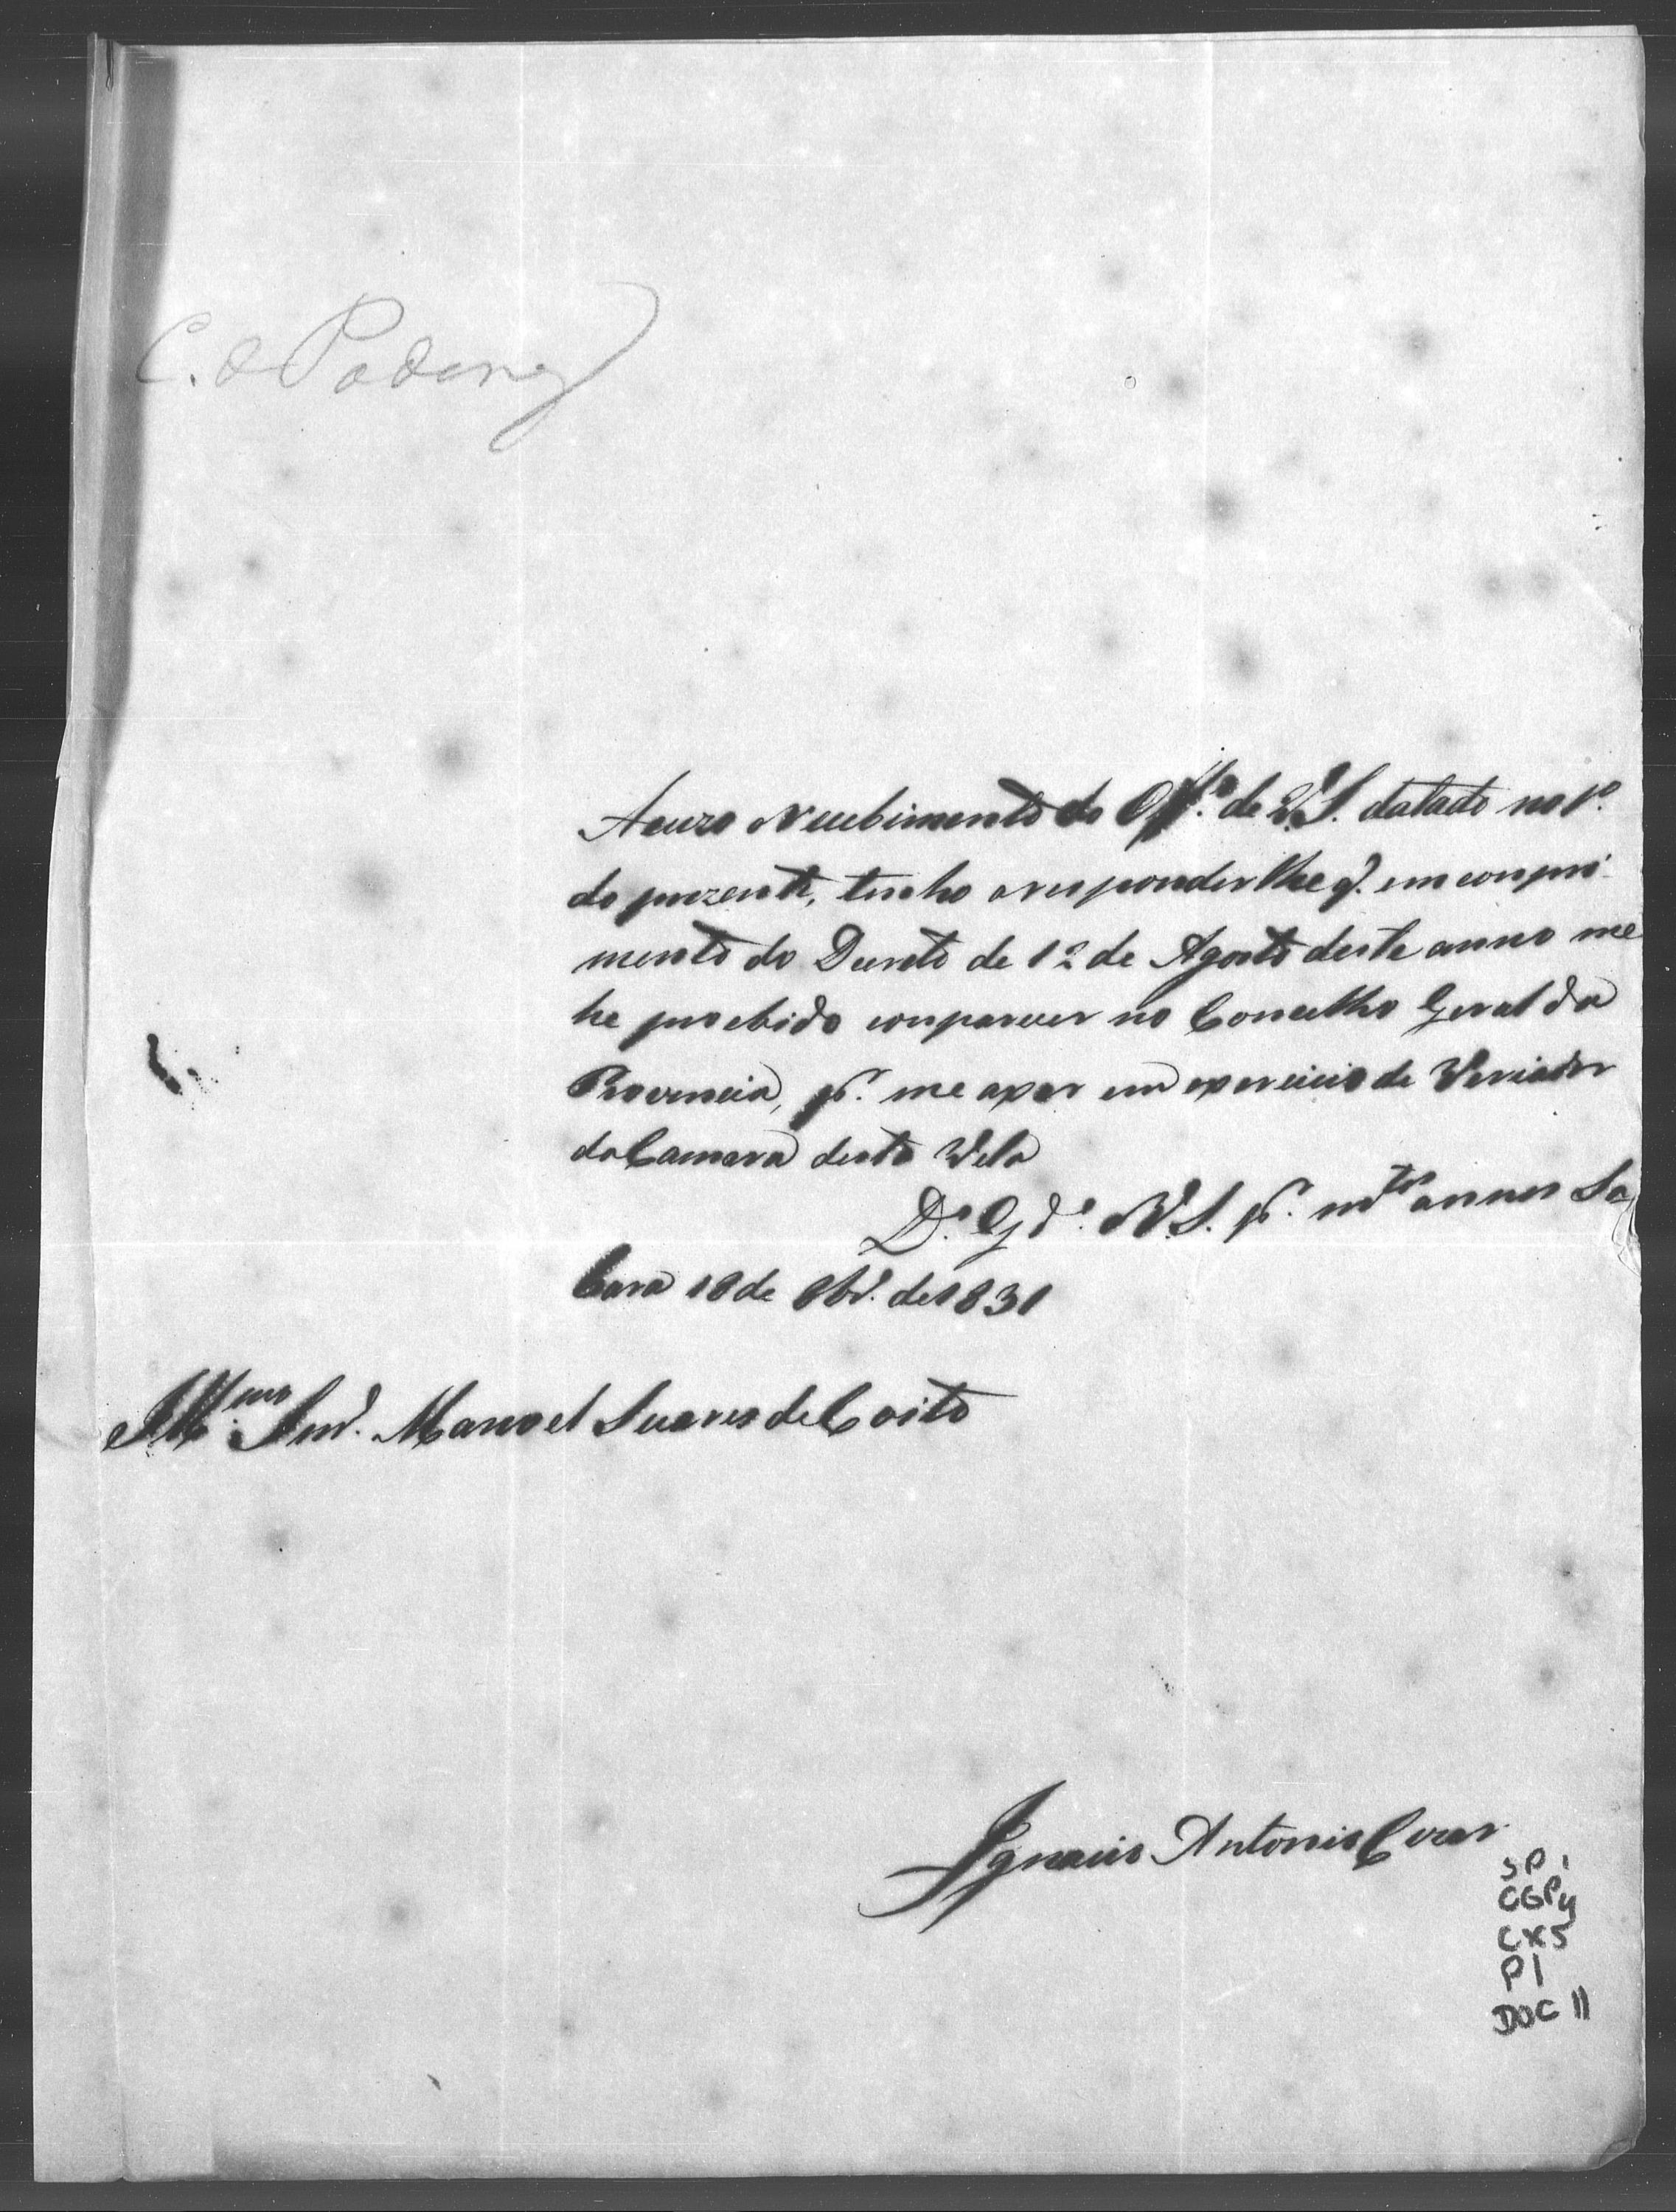 C. de Poderes
Acuzo Recebimento do Off.º de V.S. datado no 1º.
do prezente, tenho a responder lhe q. em conpri-
mento do Decreto de 12 de Agosto deste anno me
he proebido conparecer no Concelho Geral da
Provincia, pr. me axar em exercicio de Veriador
da Camara desta Vila
D.s G.de V.S. pr. m.tos annos Ja
Carahi 18 de 8br.º de 1831
Ill.mo Snr. Manoel Suares de Coito
Ignacio Antonio Cezar
SP 1
CGP4
CX5
P1
DOC 11